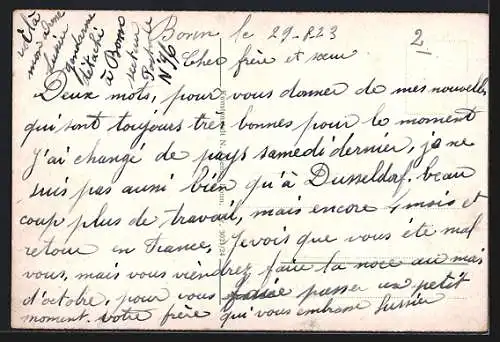 Bonn le 29-8 23
2
voilà
mon adresse
Lucien
gendarme
détaché
à Bonn
secteur
Postale
N 96
Cher frère et sœur
Deux mots, pour vous donner de mes nouvelles
qui sont toujours très bonnes pour le moment
j'ai changé de pays samedi dernier, je ne
suis pas aussi bien qu'à Dusseldorf, beau
coup plus de travail, mais encore 1 mois et
retour en France, je vois que vous été mal
vous, mais vous viendrez faire la noce au mois
d'octobre, pour vous passer un petit
moment. votre frère qui vous embrasse Lucien